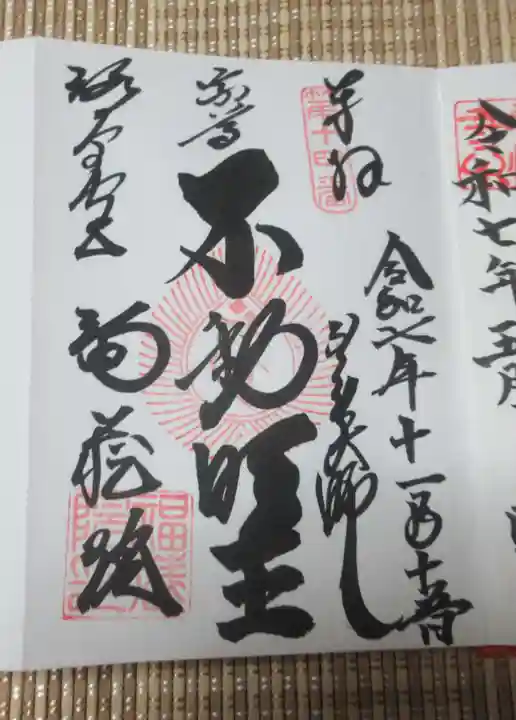 令和七年五月
奉拝
第十四番
令和七年十一月
弘法大師
本尊
不動明王
福蔵院